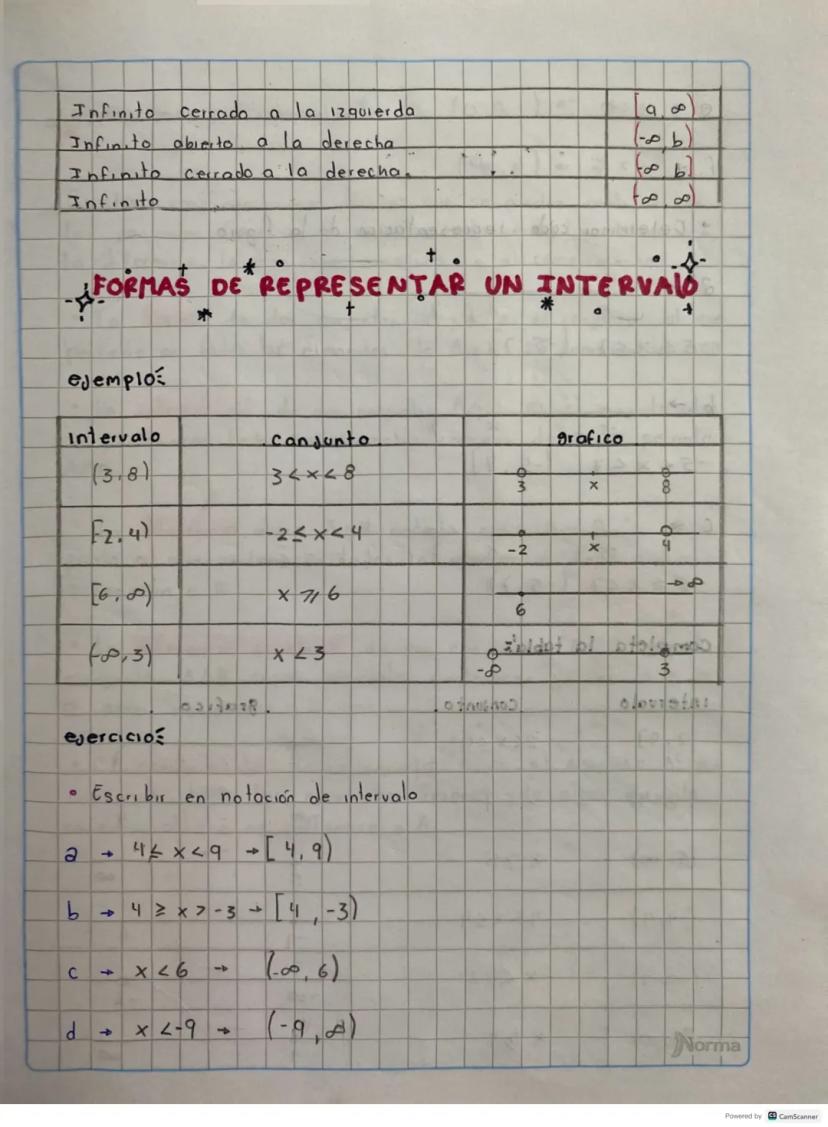 Infinito cerrado a la izquierda [a, ∞)
Infinito abierto a la derecha (-∞, b)
Infinito cerrado a la derecha. (-∞, b]
Infinito (-∞, ∞)
FORMAS DE REPRESENTAR UN INTERVALO
ejemplo:
intervalo conjunto grafico
(3,8) 3 < x < 8 3 x 8
[-2,4) -2 ≤ x < 4 -2 x 4
[6, ∞) x ≥ 6 6 → ∞
(-∞,3) x < 3 -∞ 3
ejercicio:
• Escribir en notación de intervalo
a → 4 ≤ x < 9 → [4,9)
b → 4 ≥ x > -3 → [4, -3)
c → x < 6 → (-∞, 6)
d → x < -9 → (-9, ∞)
Norma
Powered by CS CamScanner